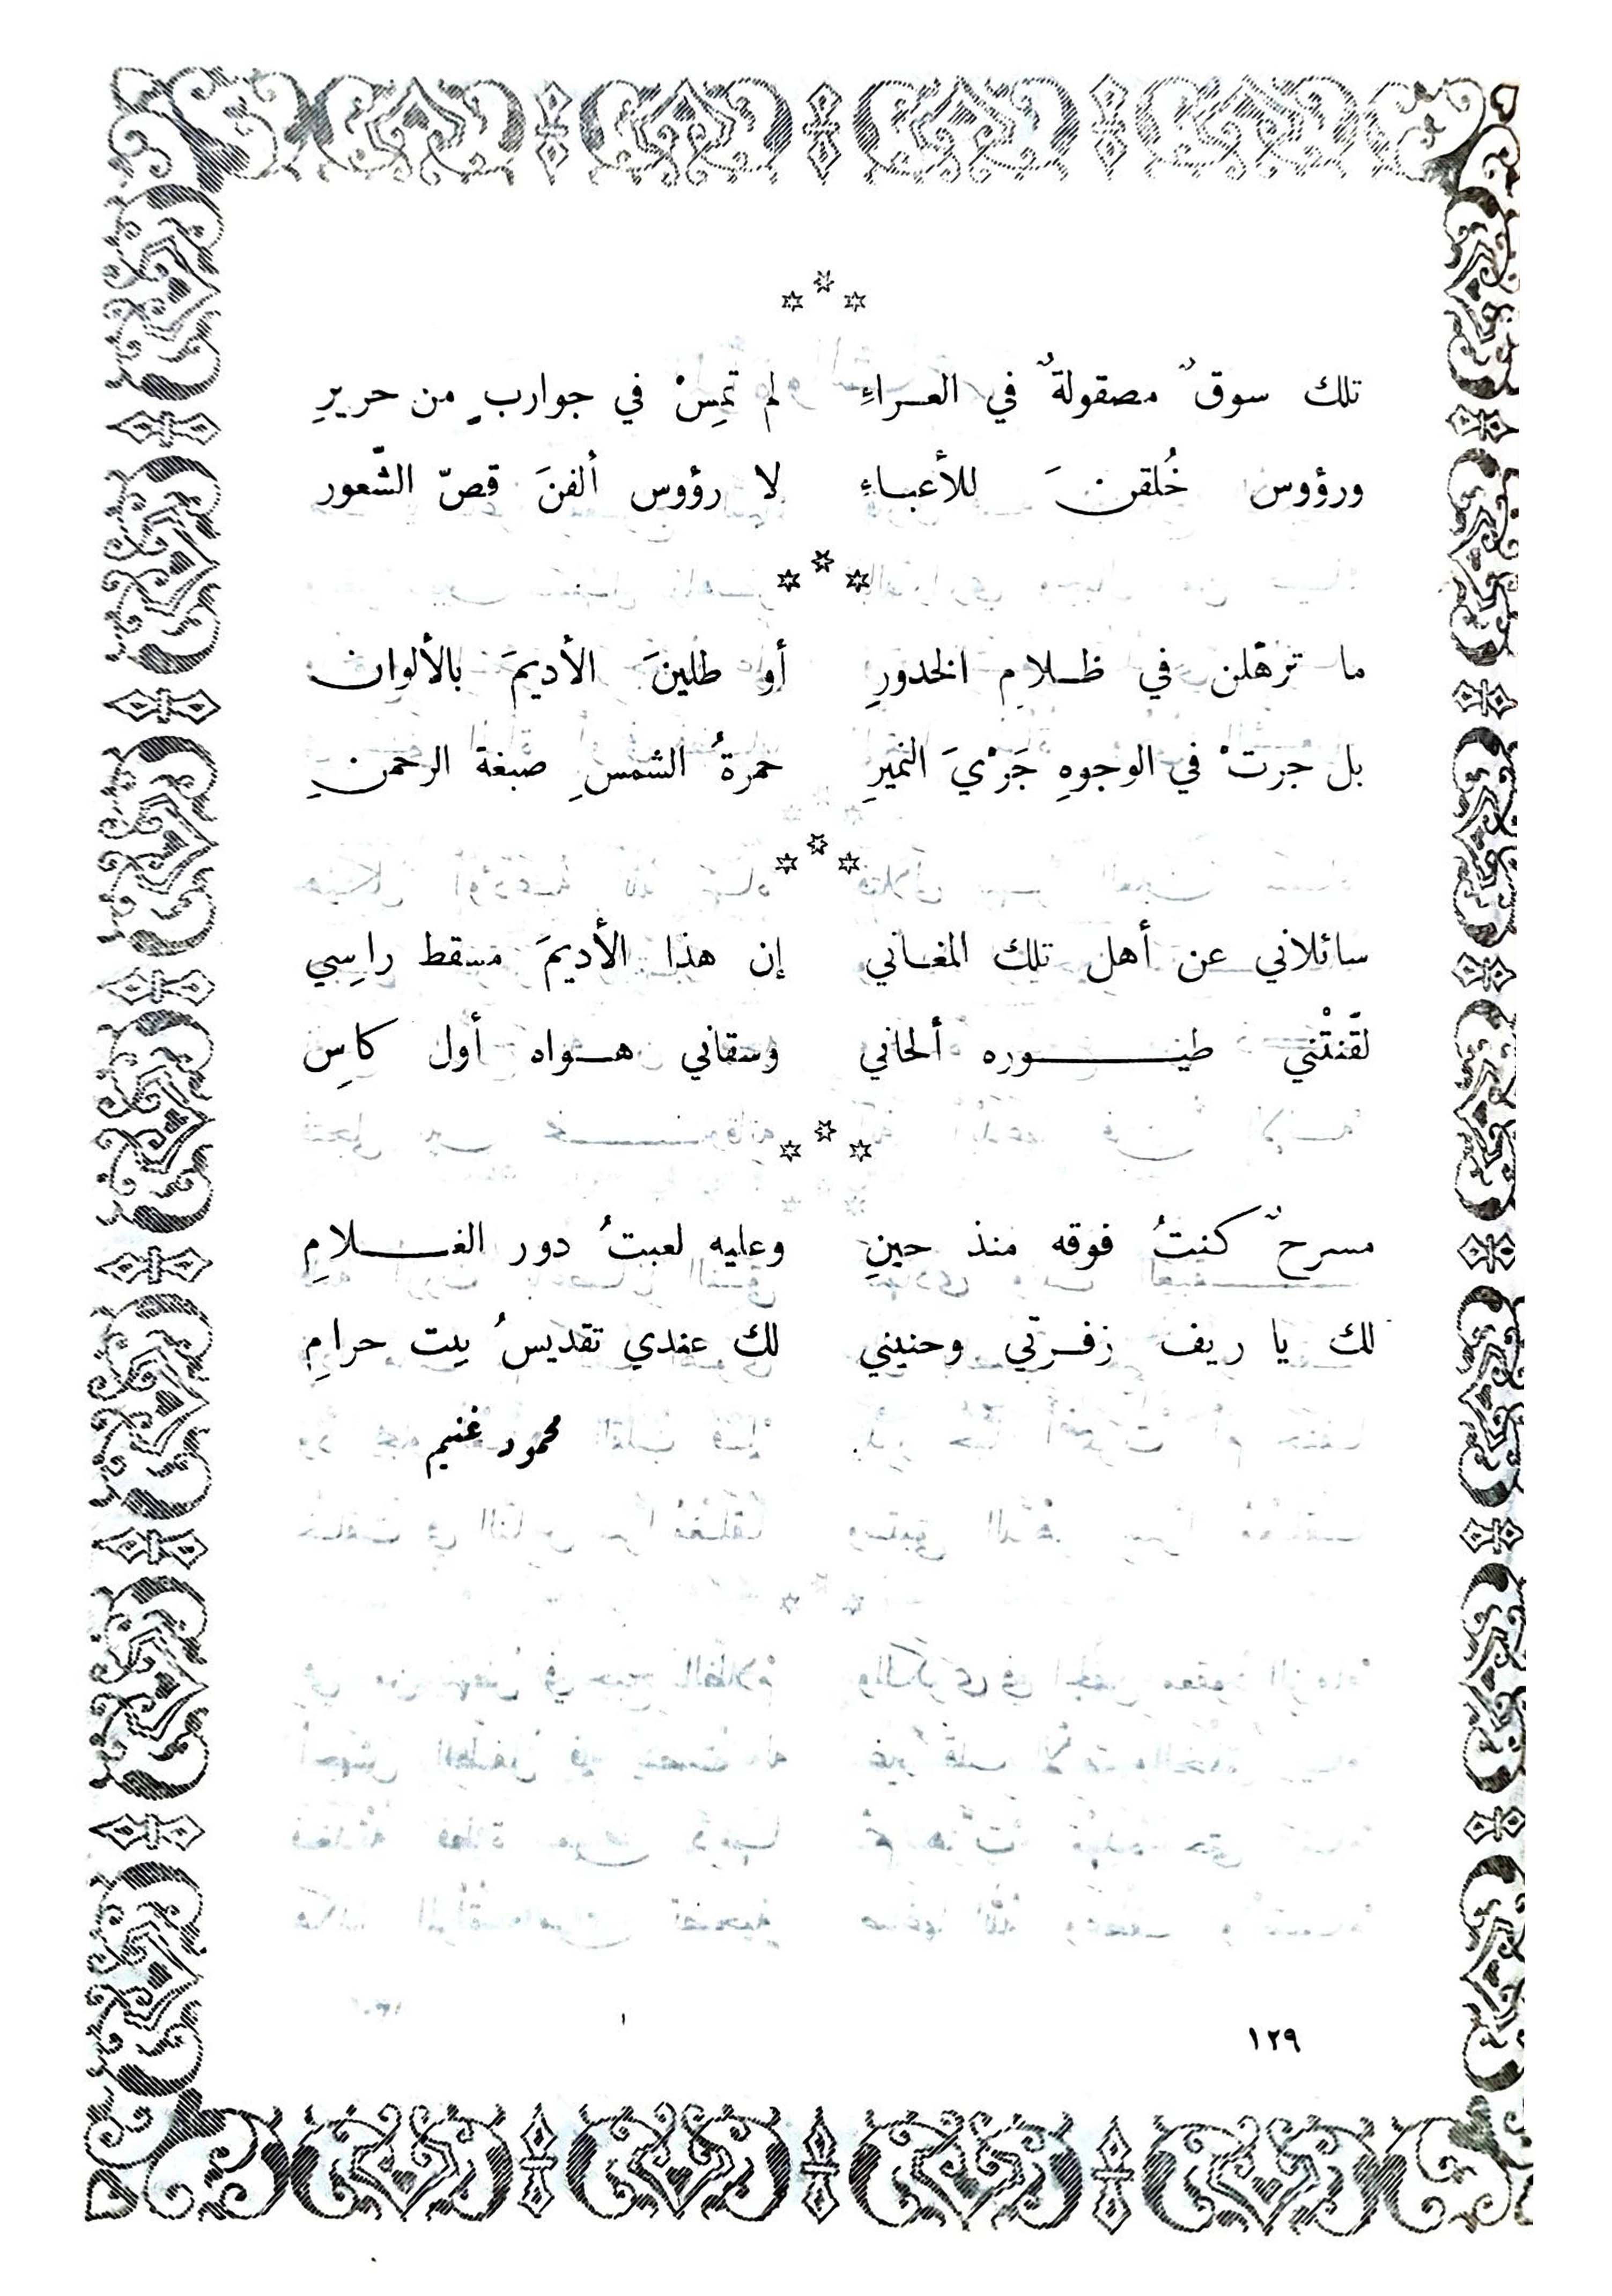 تلك سوقٌ مصقولةٌ في العراءِ لم تمِسْ في جواربٍ من حريرِ
ورؤوس خُلقنَ للأعباءِ لا رؤوس ألفنَ قصّ الشّعور
ما ترهّلن في ظلامِ الخدورِ أو طلينَ الأديمَ بالألوان
بل جرتْ في الوجوهِ جَرْيَ النميرِ حمرةُ الشمسِ صبغة الرحمنِ
سائلاني عن أهل تلك المغاني إن هذا الأديمَ مسقط راسِي
لقّنتْني طيوره ألحاني وسقاني هواه أول كاسِ
مسرحٌ كنتُ فوقه منذ حينِ وعليه لعبتُ دور الغلامِ
لك يا ريف زفرتي وحنيني لك عندي تقديسُ بيت حرامِ
محمود غنيم
١٢٩